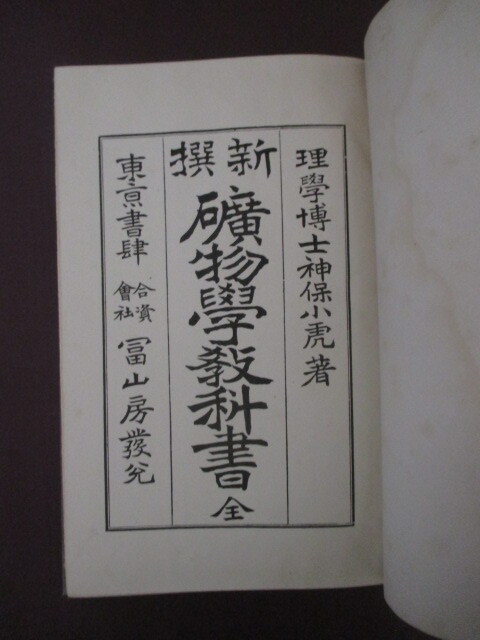 理學博士神保小虎著
新撰
礦物學教科書 全
東京書肆 合資會社 冨山房發兌